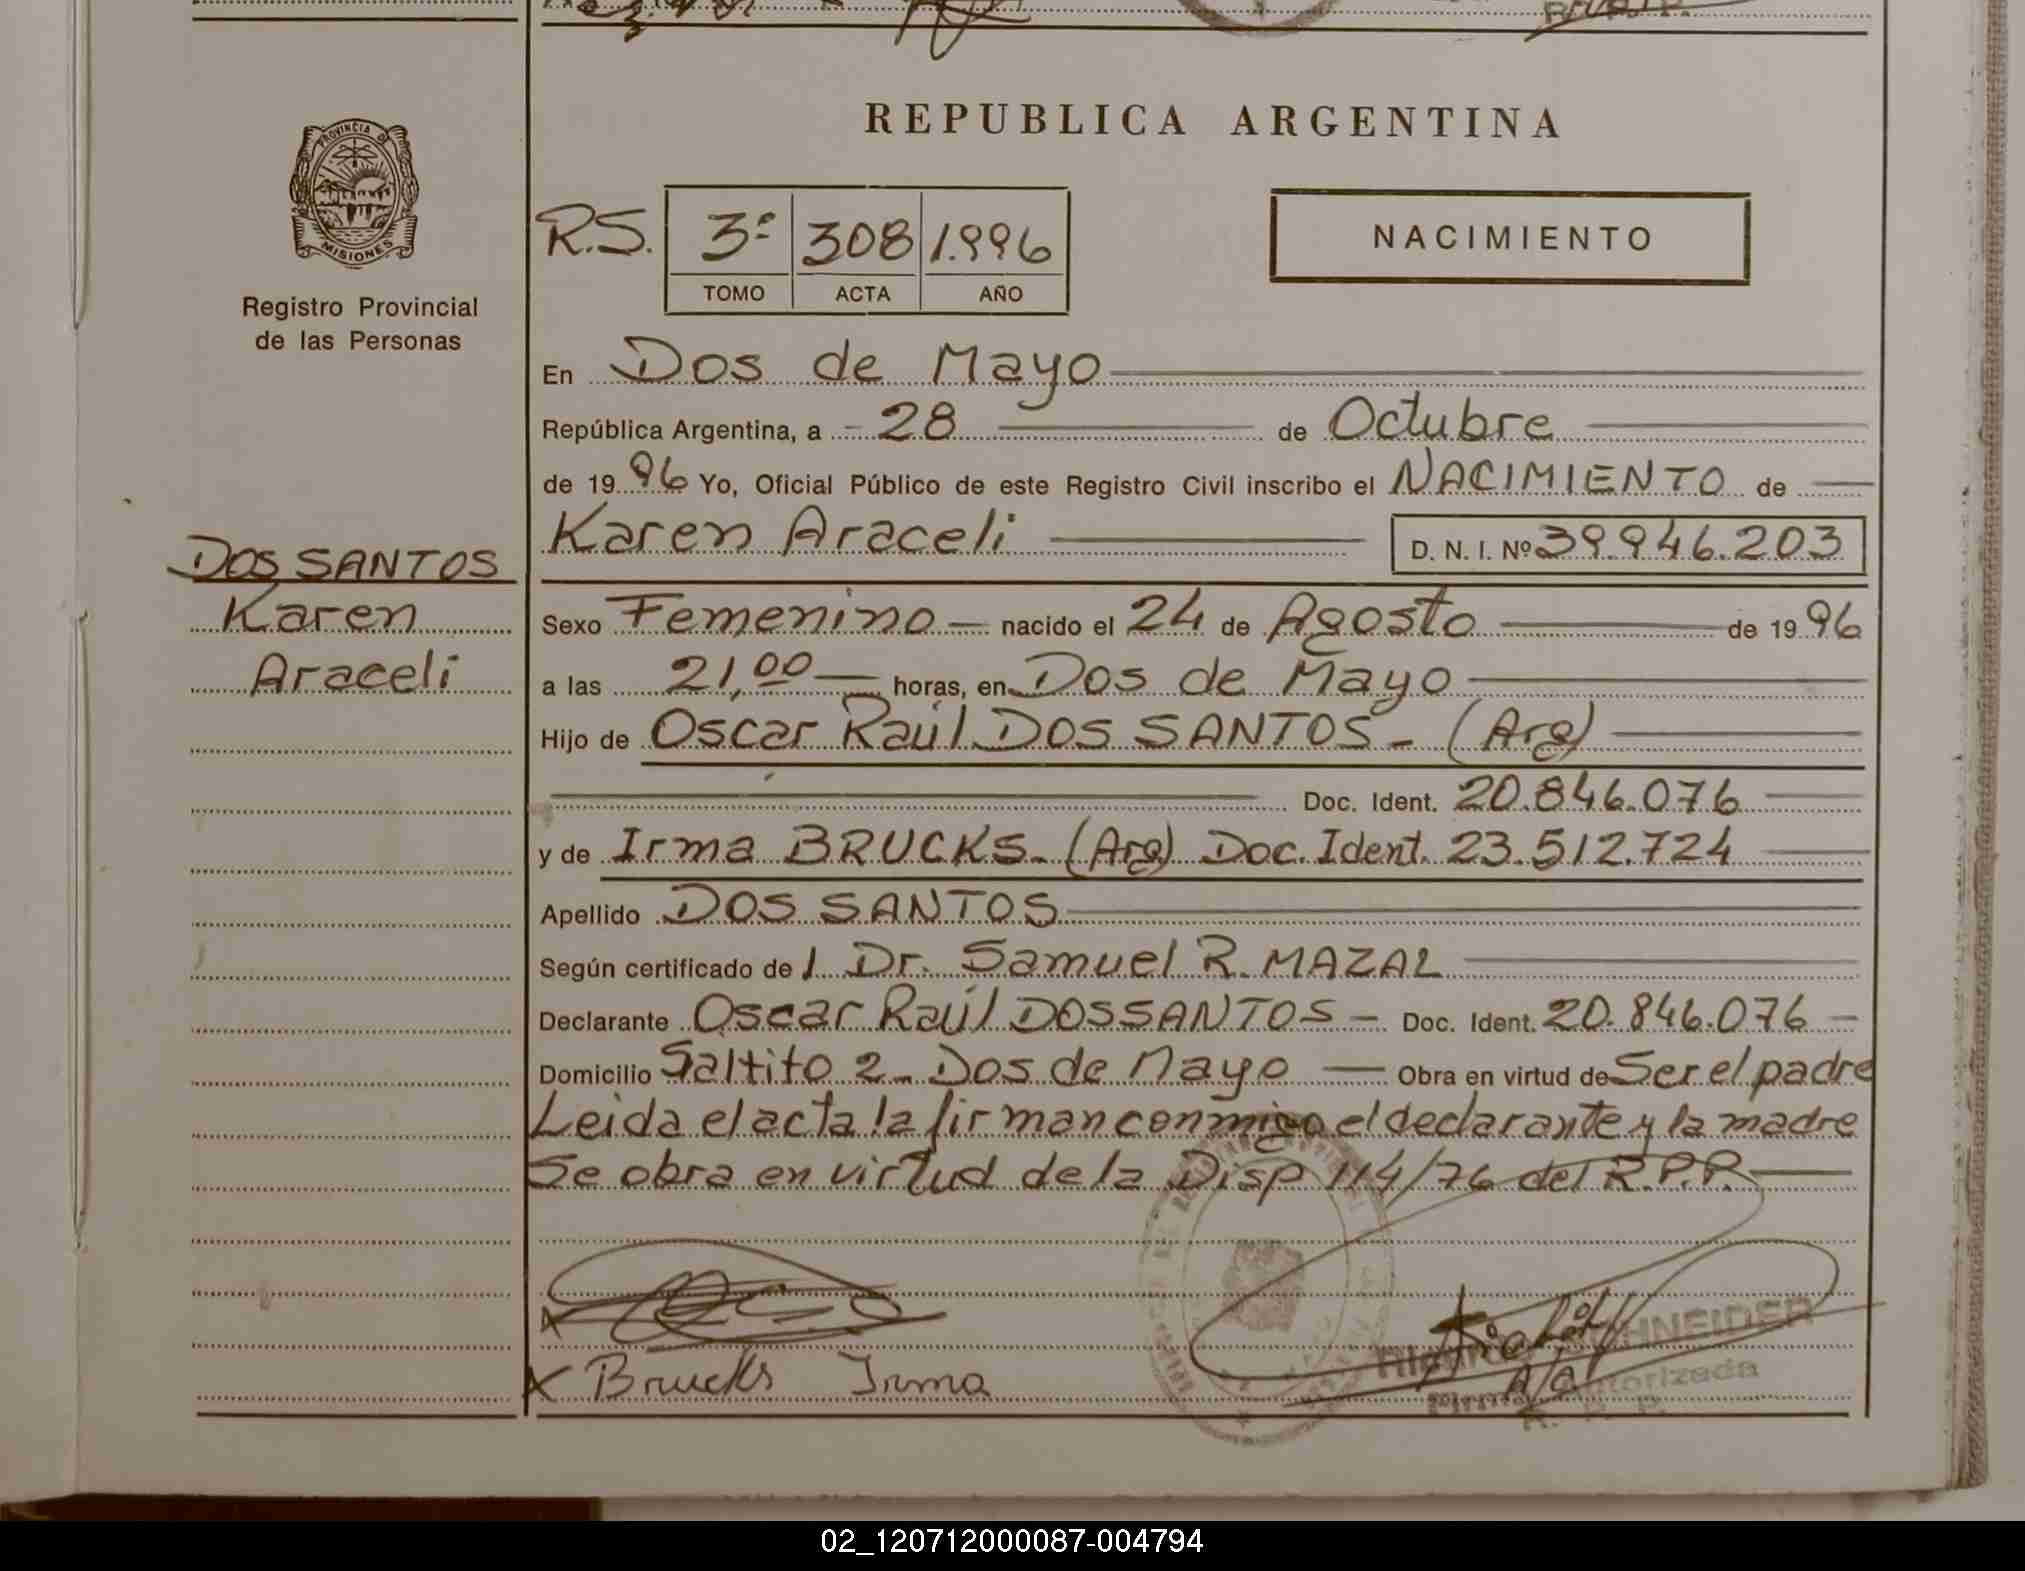 REPUBLICA ARGENTINA
PROVINCIA D
MISIONES
Registro Provincial
de las Personas
R.S. 3º 308 1.996
TOMO ACTA AÑO
NACIMIENTO
En Dos de Mayo
República Argentina, a 28 de Octubre
de 19 96 Yo, Oficial Público de este Registro Civil inscribo el NACIMIENTO de
Karen Araceli D. N. I. Nº 39.946.203
DOS SANTOS
Karen
Araceli
Sexo Femenino nacido el 24 de Agosto de 19 96
a las 21,00 horas, en Dos de Mayo
Hijo de Oscar Raúl DOS SANTOS - (Arg)
Doc. Ident. 20.846.076
y de Irma BRUCKS - (Arg) Doc. Ident. 23.512.724
Apellido DOS SANTOS
Según certificado de l Dr. Samuel R. MAZAL
Declarante Oscar Raúl DOS SANTOS - Doc. Ident. 20.846.076 -
Domicilio Saltito 2 - Dos de Mayo Obra en virtud de Ser el padre
Leida el acta la firman conmigo el declarante y la madre
Se obra en virtud de la Disp 114/76 del R.P.P.
X
SCHNEIDER
X Brucks Irma
Firma Autorizada
R. P. P.
02_120712000087-004794